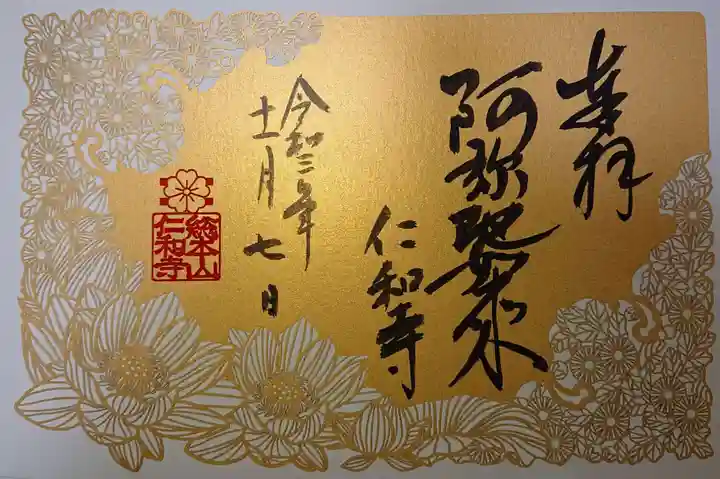 奉拝
阿弥陀如来
仁和寺
令和二年
十一月七日
総本山
仁和寺